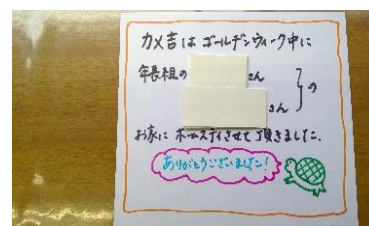 カメ吉は ゴールデンウィーク中に
年長組の さん
さん の
お家に ホームステイさせて頂きました。
ありがとうございました！